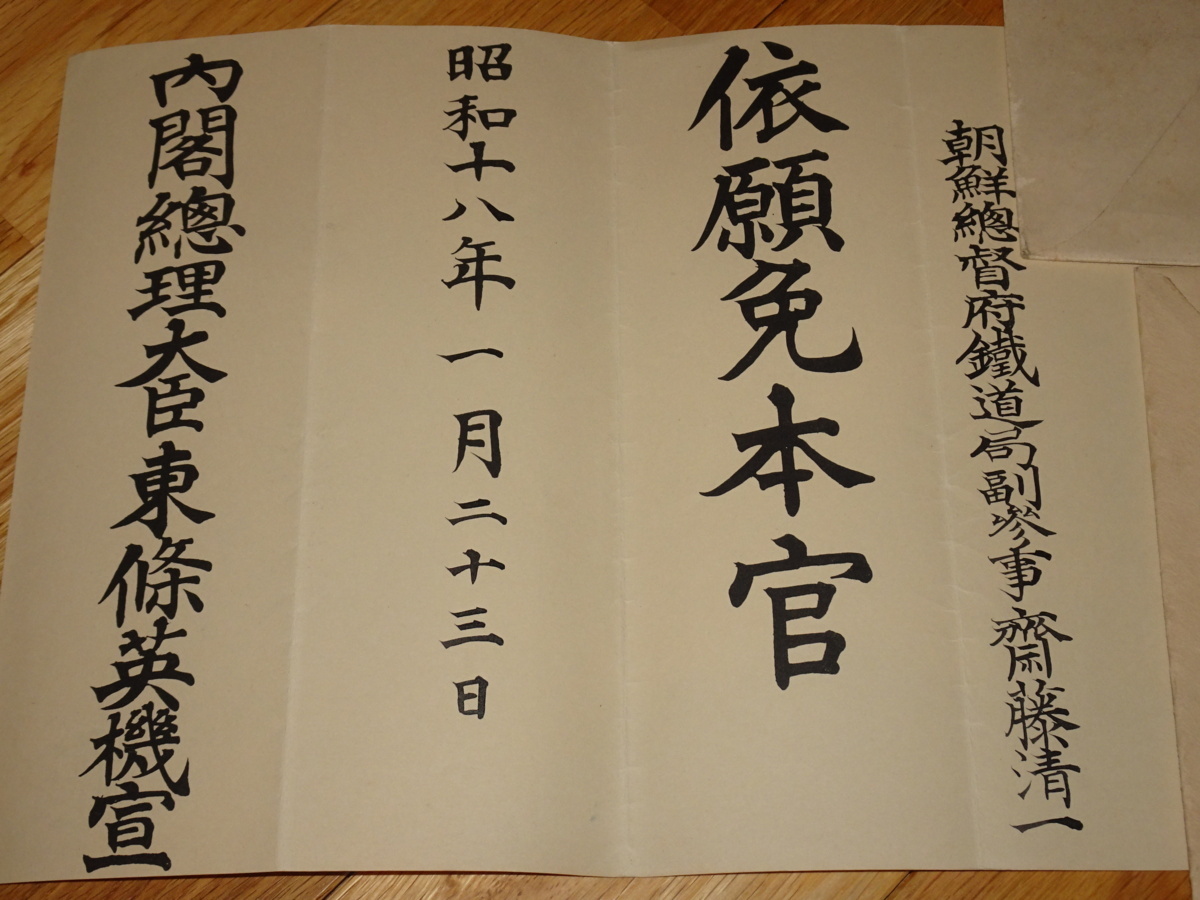 朝鮮總督府鐵道局副參事齋藤清一
依願免本官
昭和十八年一月二十三日
內閣總理大臣東條英機宣